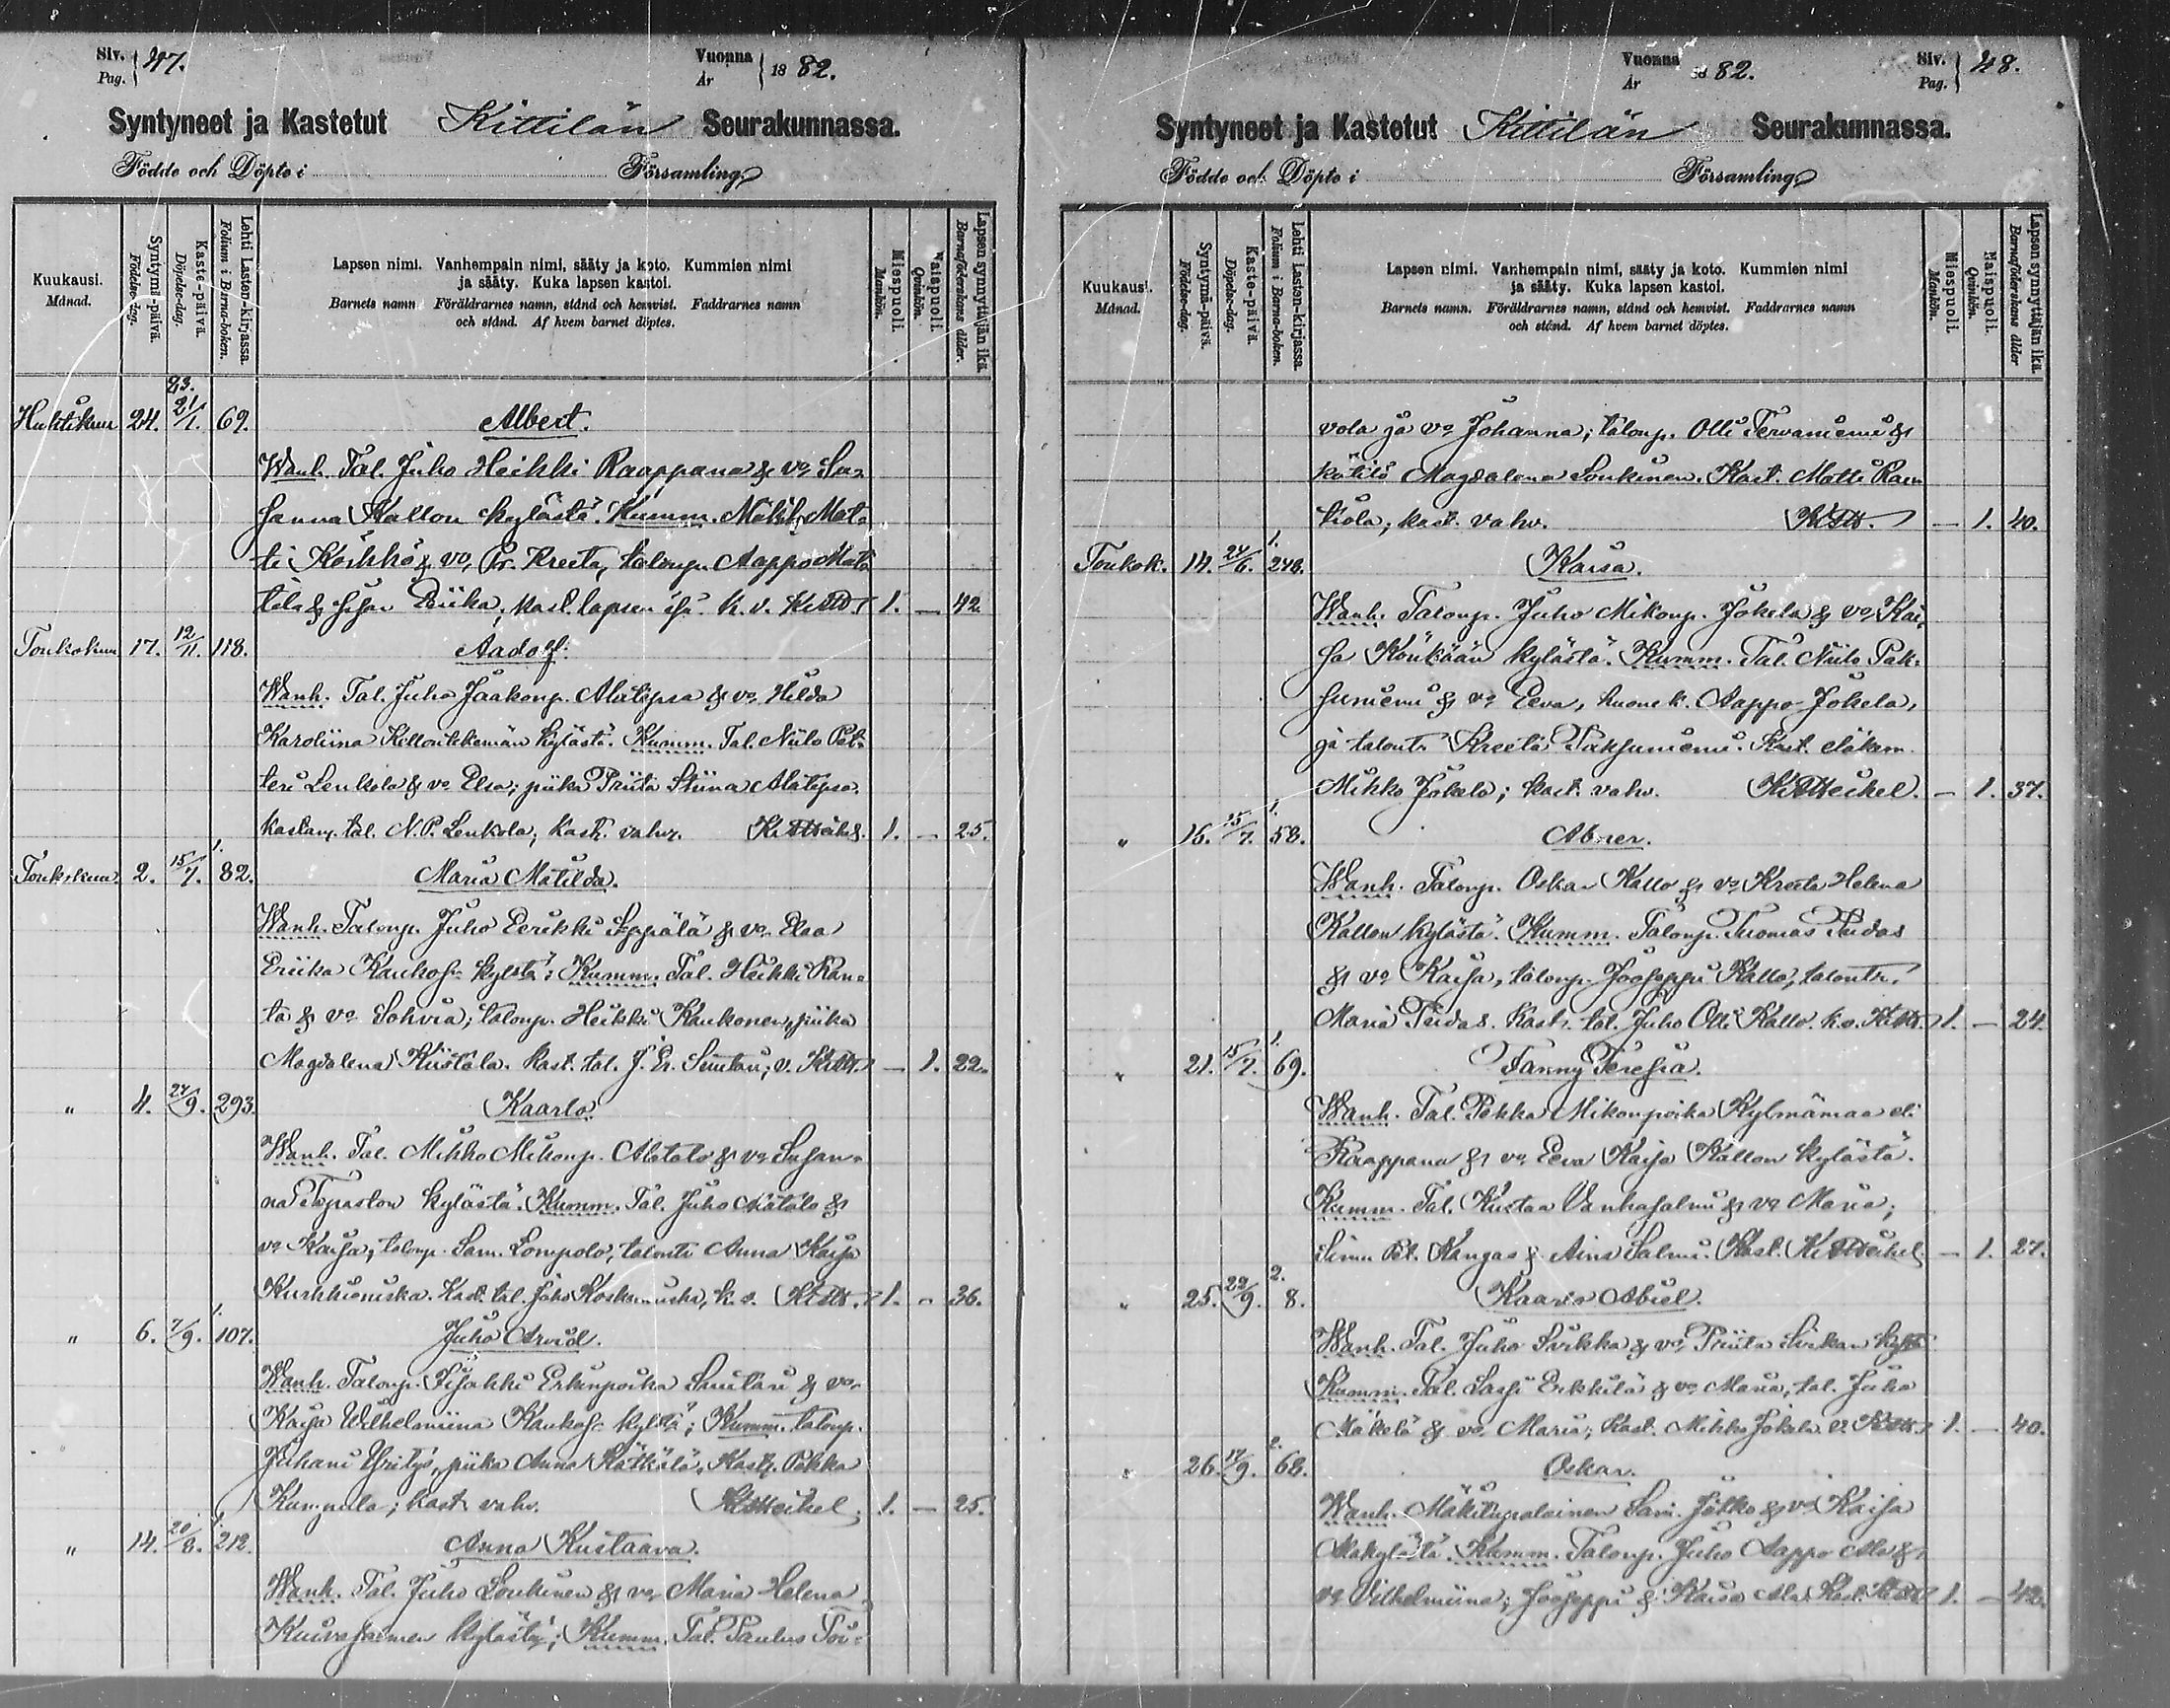 Siv. Pag. 47. Vuonna År 1882.
Syntyneet ja Kastetut Kittilän Seurakunnassa.
Födde och Döpte i Församling
Kuukausi. Månad.
Syntymä-päivä. Födelse-dag.
Kaste-päivä. Döpelse-dag.
Lehti Lasten-kirjassa. Folium i Barna-boken.
Lapsen nimi. Vanhempain nimi, sääty ja koto. Kummien nimi
ja sääty. Kuka lapsen kastoi.
Barnets namn Föräldrarnes namn, stånd och hemvist. Faddrarnes namn
och stånd. Af hvem barnet döptes.
Miespuoli. Mankön.
Naispuoli. Qvinkön.
Lapsen synnyttäjän ikä. Barnaföderskans ålder.
83.
Huhtikuu 24. 21/1. 69. Albert.
Wanh. Tal. Juho Heikki Raappana & vo Su-
sanna Kallon kylästä. Kumm. Mat-
ti & vo, Pr. Kreeta, talonp. Aappo
& Eriika, kast. lapsen isä. k. v. 1. — 42
Toukokuu 17. 12/11. 118. Aadolf.
Wanh. Tal. Juho Jaakonp. & vo Hilda
Karoliina kylästä. Kumm. Tal. Niilo Pet-
teri Lenkola & vo Elsa; piika Priita Stiina
tal. N. P. Lenkola, kast. vahv. 1. — 25.
1.
Toukokuu 2. 15/7. 82. Maria Matilda.
Wanh. Talonp. Juho Eerikki Seppälä & vo Elsa
Eriika kylstä; Kumm. Tal. Heikki Ran-
ta & vo Sohvia; talonp. Heikki Kaukonen, piika
Magdalena Kiistala. Kast. tal. J. Er. v. — 1. 22.
" 4. 24/9. 293. Kaarlo.
Wanh. Tal. Mikko Mikonp. Alatalo & vo Susan-
na kylästä. Kumm. Tal. Juho &
vo Kaisa, talonp. Sam. Lompolo, Anna Kaisa
Kurkkioniska. Kast. tal. Juho k. v. 1. " 36.
1.
" 6. 7/9. 107. Juho Arvid.
Wanh. Talonp. Iisakki Erkinpoika & vo
Kaisa Wilhelmiina kyltä; Kumm. talonp.
Juhani Yritys, piika Anna Kätkälä, Kast. Pekka
Kumpula; kast. vahv. 1. — 25.
1.
" 14. 20/8. 212. Anna Kustaava.
Wanh. Tal. Juho Loukinen & vo Maria Helena
kylästä; Kumm. Tal. Paulus Toi-
Vuonna År 1882. Siv. Pag. 48.
Syntyneet ja Kastetut Kittilän Seurakunnassa.
Födde och Döpte i Församling
Kuukausi. Månad.
Syntymä-päivä. Födelse-dag.
Kaste-päivä. Döpelse-dag.
Lehti Lasten-kirjassa. Folium i Barna-boken.
Lapsen nimi. Vanhempain nimi, sääty ja koto. Kummien nimi
ja sääty. Kuka lapsen kastoi.
Barnets namn. Föräldrarnes namn, stånd och hemvist. Faddrarnes namn
och stånd. Af hvem barnet döptes.
Miespuoli. Mankön.
Naispuoli. Qvinkön.
Lapsen synnyttäjän ikä. Barnaföderskans ålder
vola ja vo Johanna; talonp. Olli Tervaniemi &
kätilö Magdalena Loukinen. Kast. Matti
kast. vahv. — 1. 40.
1.
Toukok. 14. 24/6. 240. Kaisa.
Wanh. Talonp. Juho Mikonp. Jokela & vo Kai-
sa Könkään kylästä. Kumm. Tal. Niilo Pak-
suniemi & vo Eeva, huonek. Aappo Jokela,
ja talontr Kreeta Paksuniemi. Kast.
Mikko Jokela; kast. vahv. — 1. 37.
1.
" 16. 15/7. 58. Abner.
Wanh. Talonp. Oskar Kallo & vo Kreeta Helena
Kallon kylästä. Kumm. Talonp. Tuomas
& vo Kaisa, talonp. Jooseppi Kallo, talontr.
Maria Kast. tal. Juho Olli Kallo. k. v. 1. — 24.
1.
" 21. 15/7. 69. Fanny Teresia.
Wanh. Tal. Pekka Mikonpoika Kylmämaa el.
Raappana & vo Eeva Kaisa Kallon kylästä.
Kumm. Tal. Kustaa Vanhasalmi & vo Maria;
Simu Pet. Kangas & Aina Salmi. Kast. — 1. 27.
2.
" 25. 22/9. 8. Kaarlo Abiel.
Wanh. Tal. Juho Sirkka & vo Priita Sirkan kyltä
Kumm. Tal. Lassi Erkkilä & vo Maria, tal. Juho
Mäkelä & vo Maria; Kast. Mikko Jokela. v. 1. — 40.
2.
" 26. 17/9. 68. Oskar.
Wanh. Mäkitupalainen Sam. Jätkö & vo Kaisa
Alakylästä. Kumm. Talonp. Juho Aappo Ala &
vo Vilhelmiina; Jooseppi & Kaisa Ala. Kast. 1. — 42.